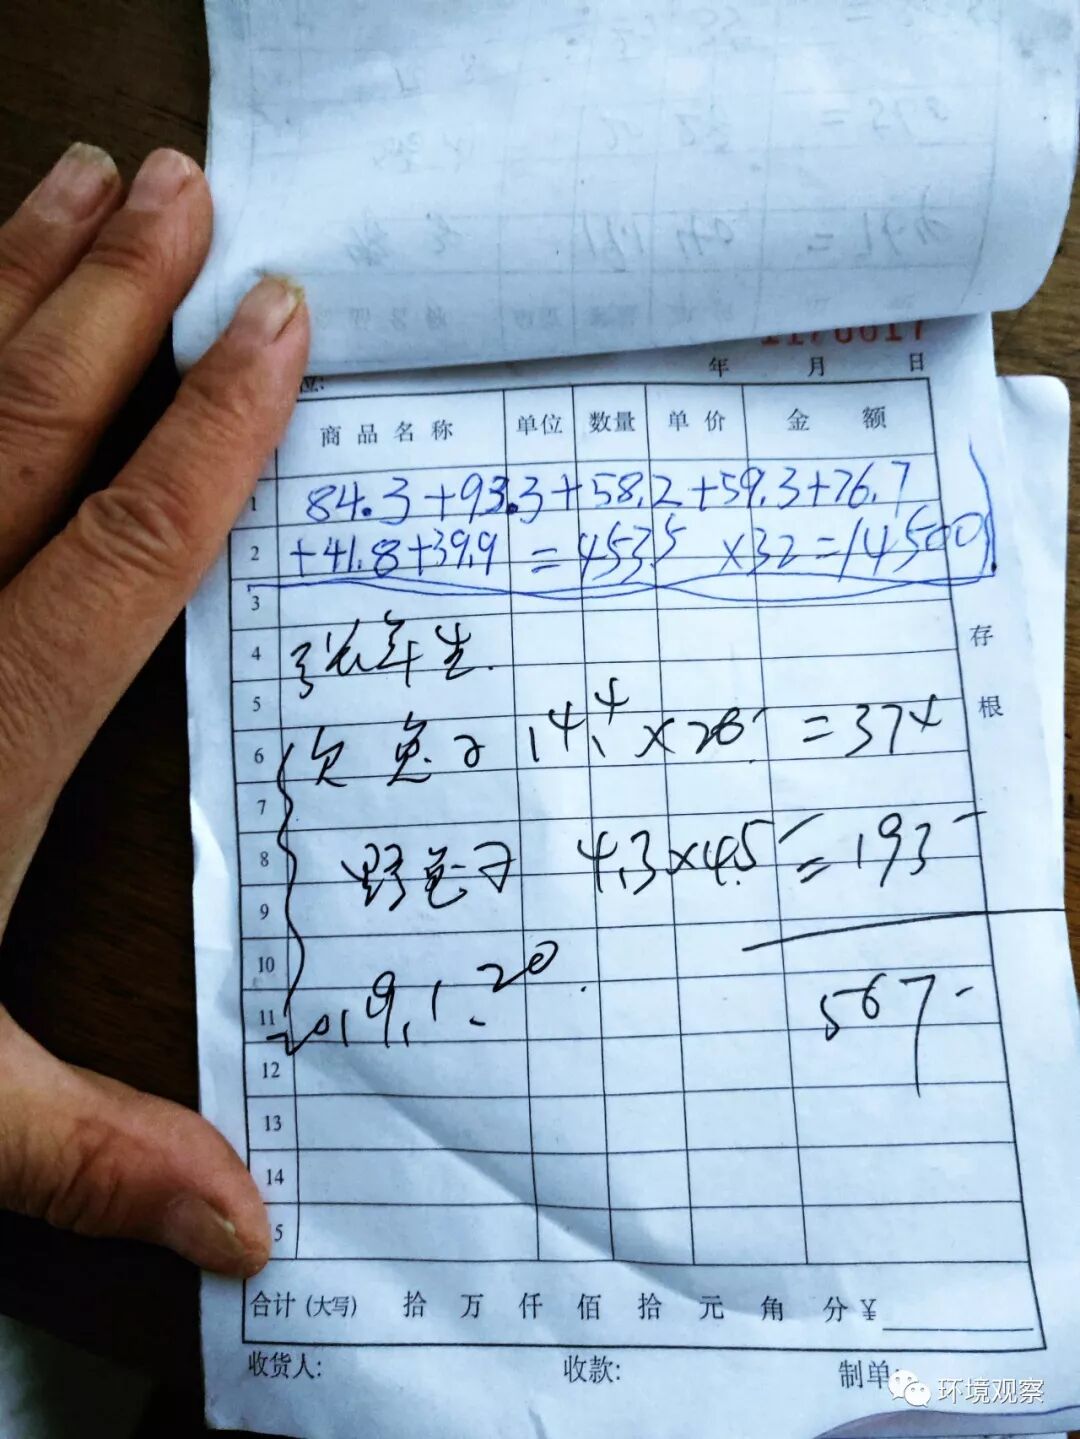 1170017
位:
年 月 日
商品名称 单位 数量 单价 金额
1 84.3+93.3+58.2+59.3+76.7
2 +41.8+39.9=453.5 ×32=14500
3
4 张年生.
存根
5
6 欠 兔子 14.4×26=374
7
8 野兔子 4.3×45=193-
9
10
11 2019.1.20
567-
12
13
14
5
合计(大写) 拾 万 仟 佰 拾 元 角 分¥
收货人: 收款: 制单:
环境观察